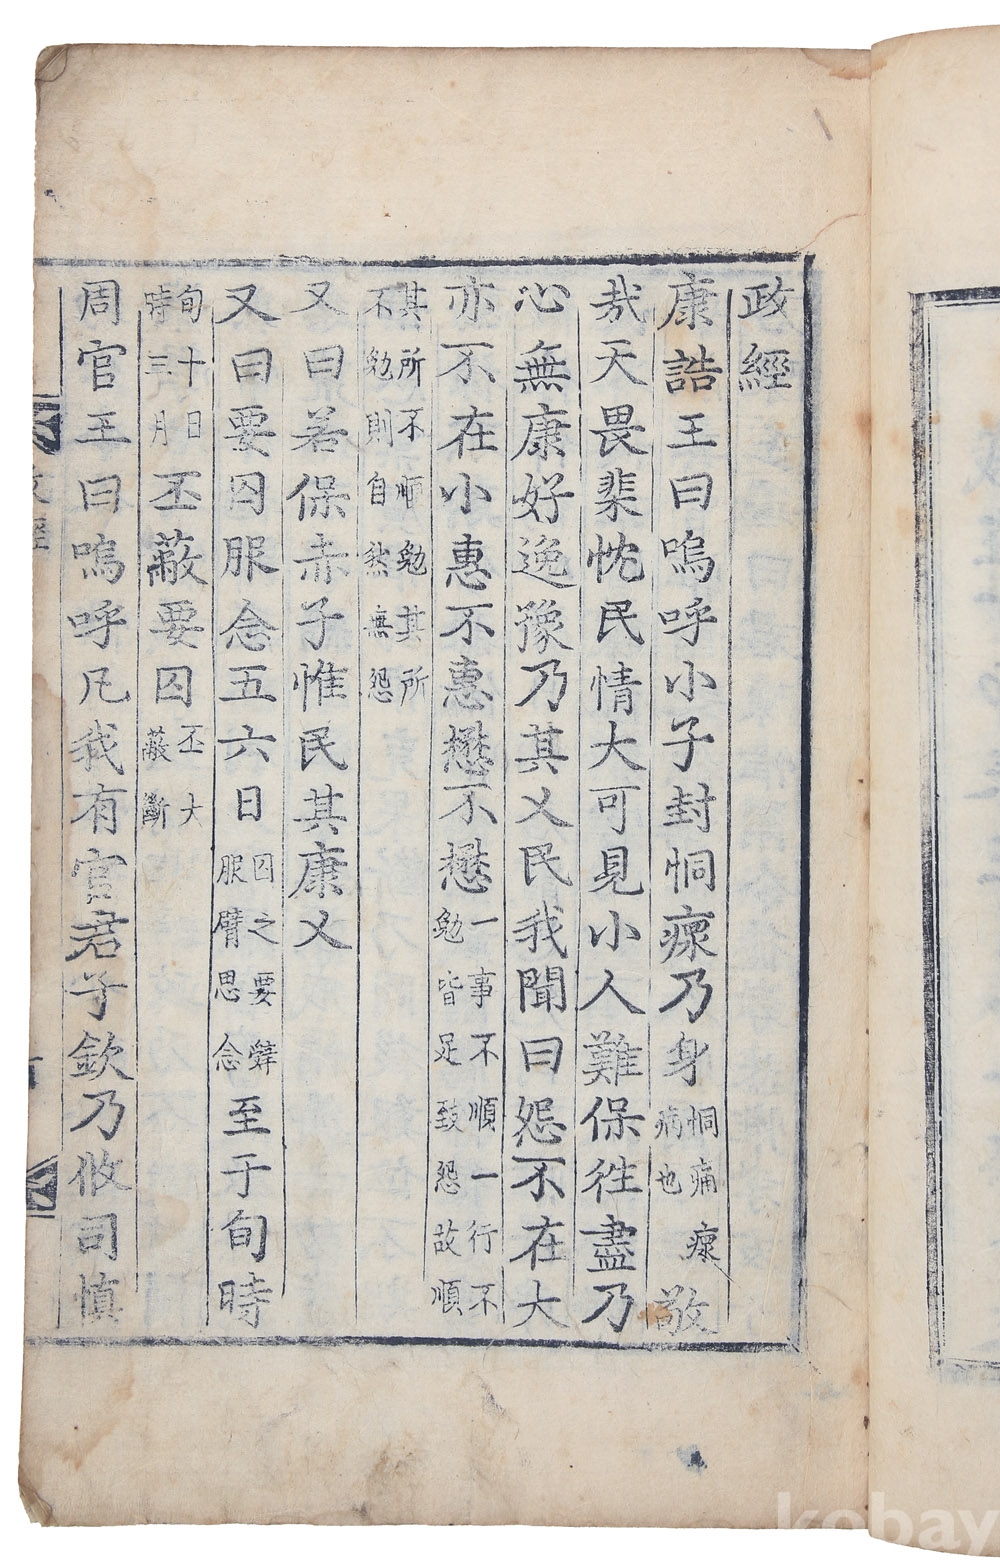 政經
康誥王曰嗚呼小子封恫瘝乃身恫痛瘝病也敬
哉天畏棐忱民情大可見小人難保徃盡乃
心無康好逸豫乃其乂民我聞曰怨不在大
亦不在小惠不惠懋不懋一事不順一行不勉皆足致怨故順
其所不順勉其所不勉則自然無怨
又曰若保赤子惟民其康乂
又曰要囚服念五六日囚之要辤服膺思念至于旬時
旬十日時三月丕蔽要囚丕大蔽斷
周官王曰嗚呼凡我有官君子欽乃攸司慎
政經
kobay